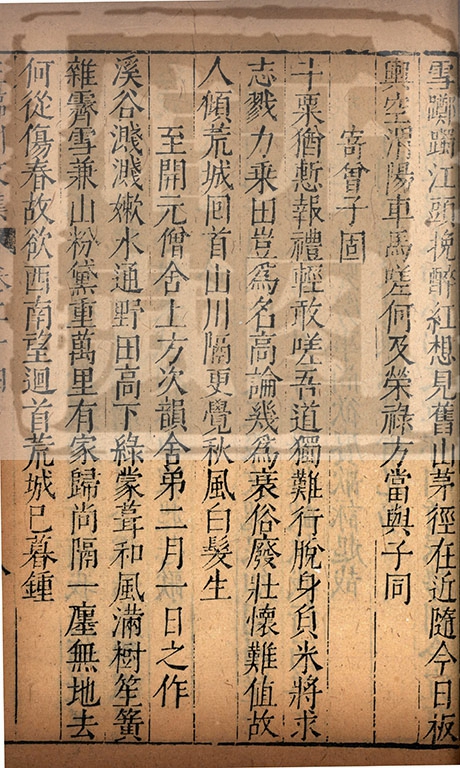 雪躑躅江頭挽醉紅想見舊山茅徑在近隨今日板
輿空渭陽車馬嗟何及榮祿方當與子同
寄曾子固
斗粟猶慙報禮輕敢嗟吾道獨難行脫身負米將求
志戮力乘田豈為名高論幾為衰俗廢壯懷難值故
人傾荒城回首山川隔更覺秋風白髮生
至開元僧舍上方次韻舍弟二月一日之作
溪谷濺濺嫰水通野田高下綠蒙茸和風滿樹笙簧
雜霽雪兼山粉黛重萬里有家歸尚隔一廛無地去
何從傷春故欲西南望迴首荒城已暮鍾